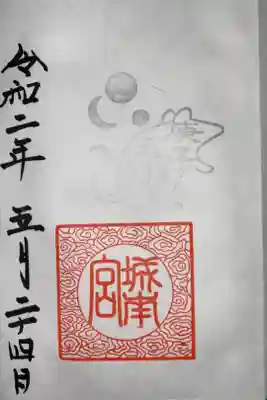 令和二年 五月二十四日
城南宮